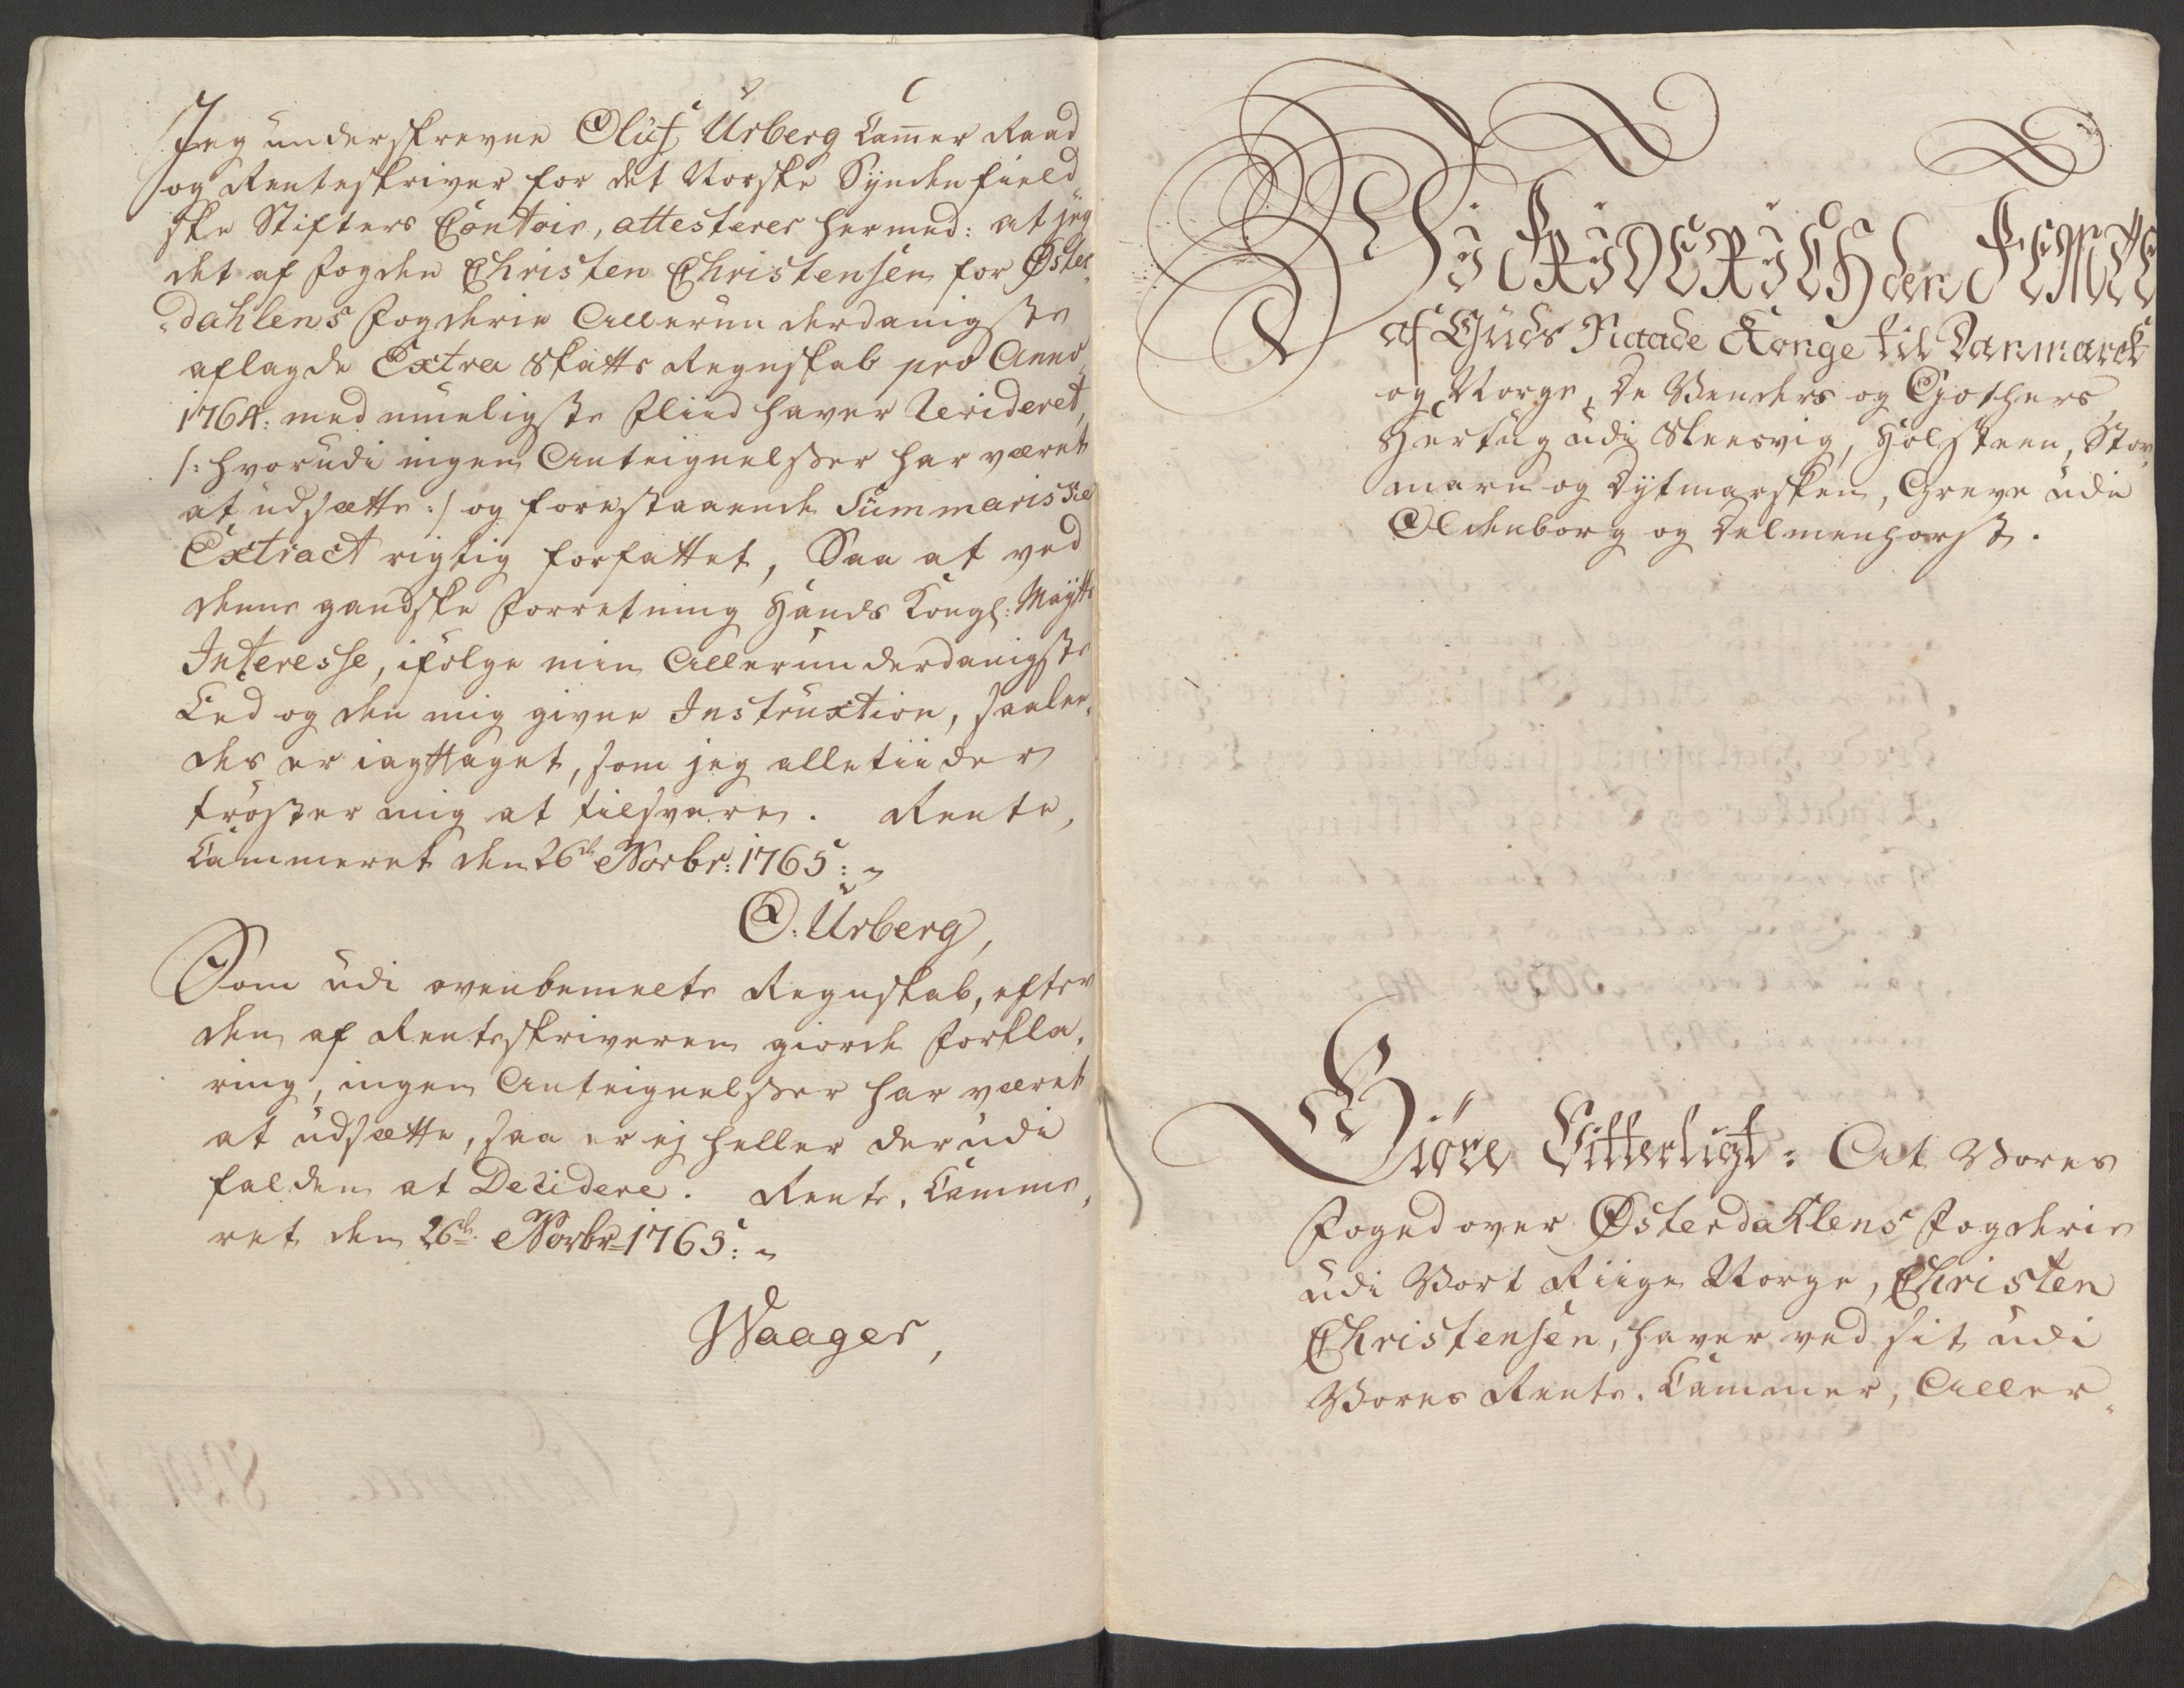 Jeg underskrevne Oluf Urberg Cam̅er Raad
og Renteskriver for det Norske Syndenfield,,
ske Stifters Contoir, attesterer hermed: at jeg
det af Fogden Christen Christensen for Øster,,
,,dahlens Fogderie Allerunderdanigste
aflagde Extra Skatts Regnskab pro Anno
1764: med mueligste Fliid haver Revideret,
/: hvorudi ingen Anteignelsser har været
at udsætte :/ og forestaaende Summariske
Extract rigtig forfattet, Saa at ved
denne gandske Forretning Hands Kongl: Maytts
Interesse, ifølge min Allerunderdanigste
Eed og den mig givne Instruxtion, saalee,,
des er iagttaget, som jeg alletiider
trøster mig at tilsvare. Rente,
Cammeret den 26de Novbr: 1765:
O: Urberg,
Som udi ovenbemelte Regnskab, efter
den af Renteskriveren giorde Forkla,
ring, ingen Anteignelsser har været
at udsætte, saa er ej heller derudi
falden at Decidere. Rente, Camme,
ret den 26de Novbr 1765:
Waager,
Vi FRiDERiCH den FEMTE
af Guds Naade Konge til Danmarck
og Norge, De Venders og Gothers
Hertug udi Sleesvig, Holsteen, Stor,,
marn og Dytmarsken, Greve udi
Oldenborg og Delmenhorst.
Giöre Vitterligt: At Vores
Foged over Østerdahlens Fogderie
udi Vort Riige Norge, Christen
Christensen, haver ved sit udi
Vores Rente, Cammer, Aller,,